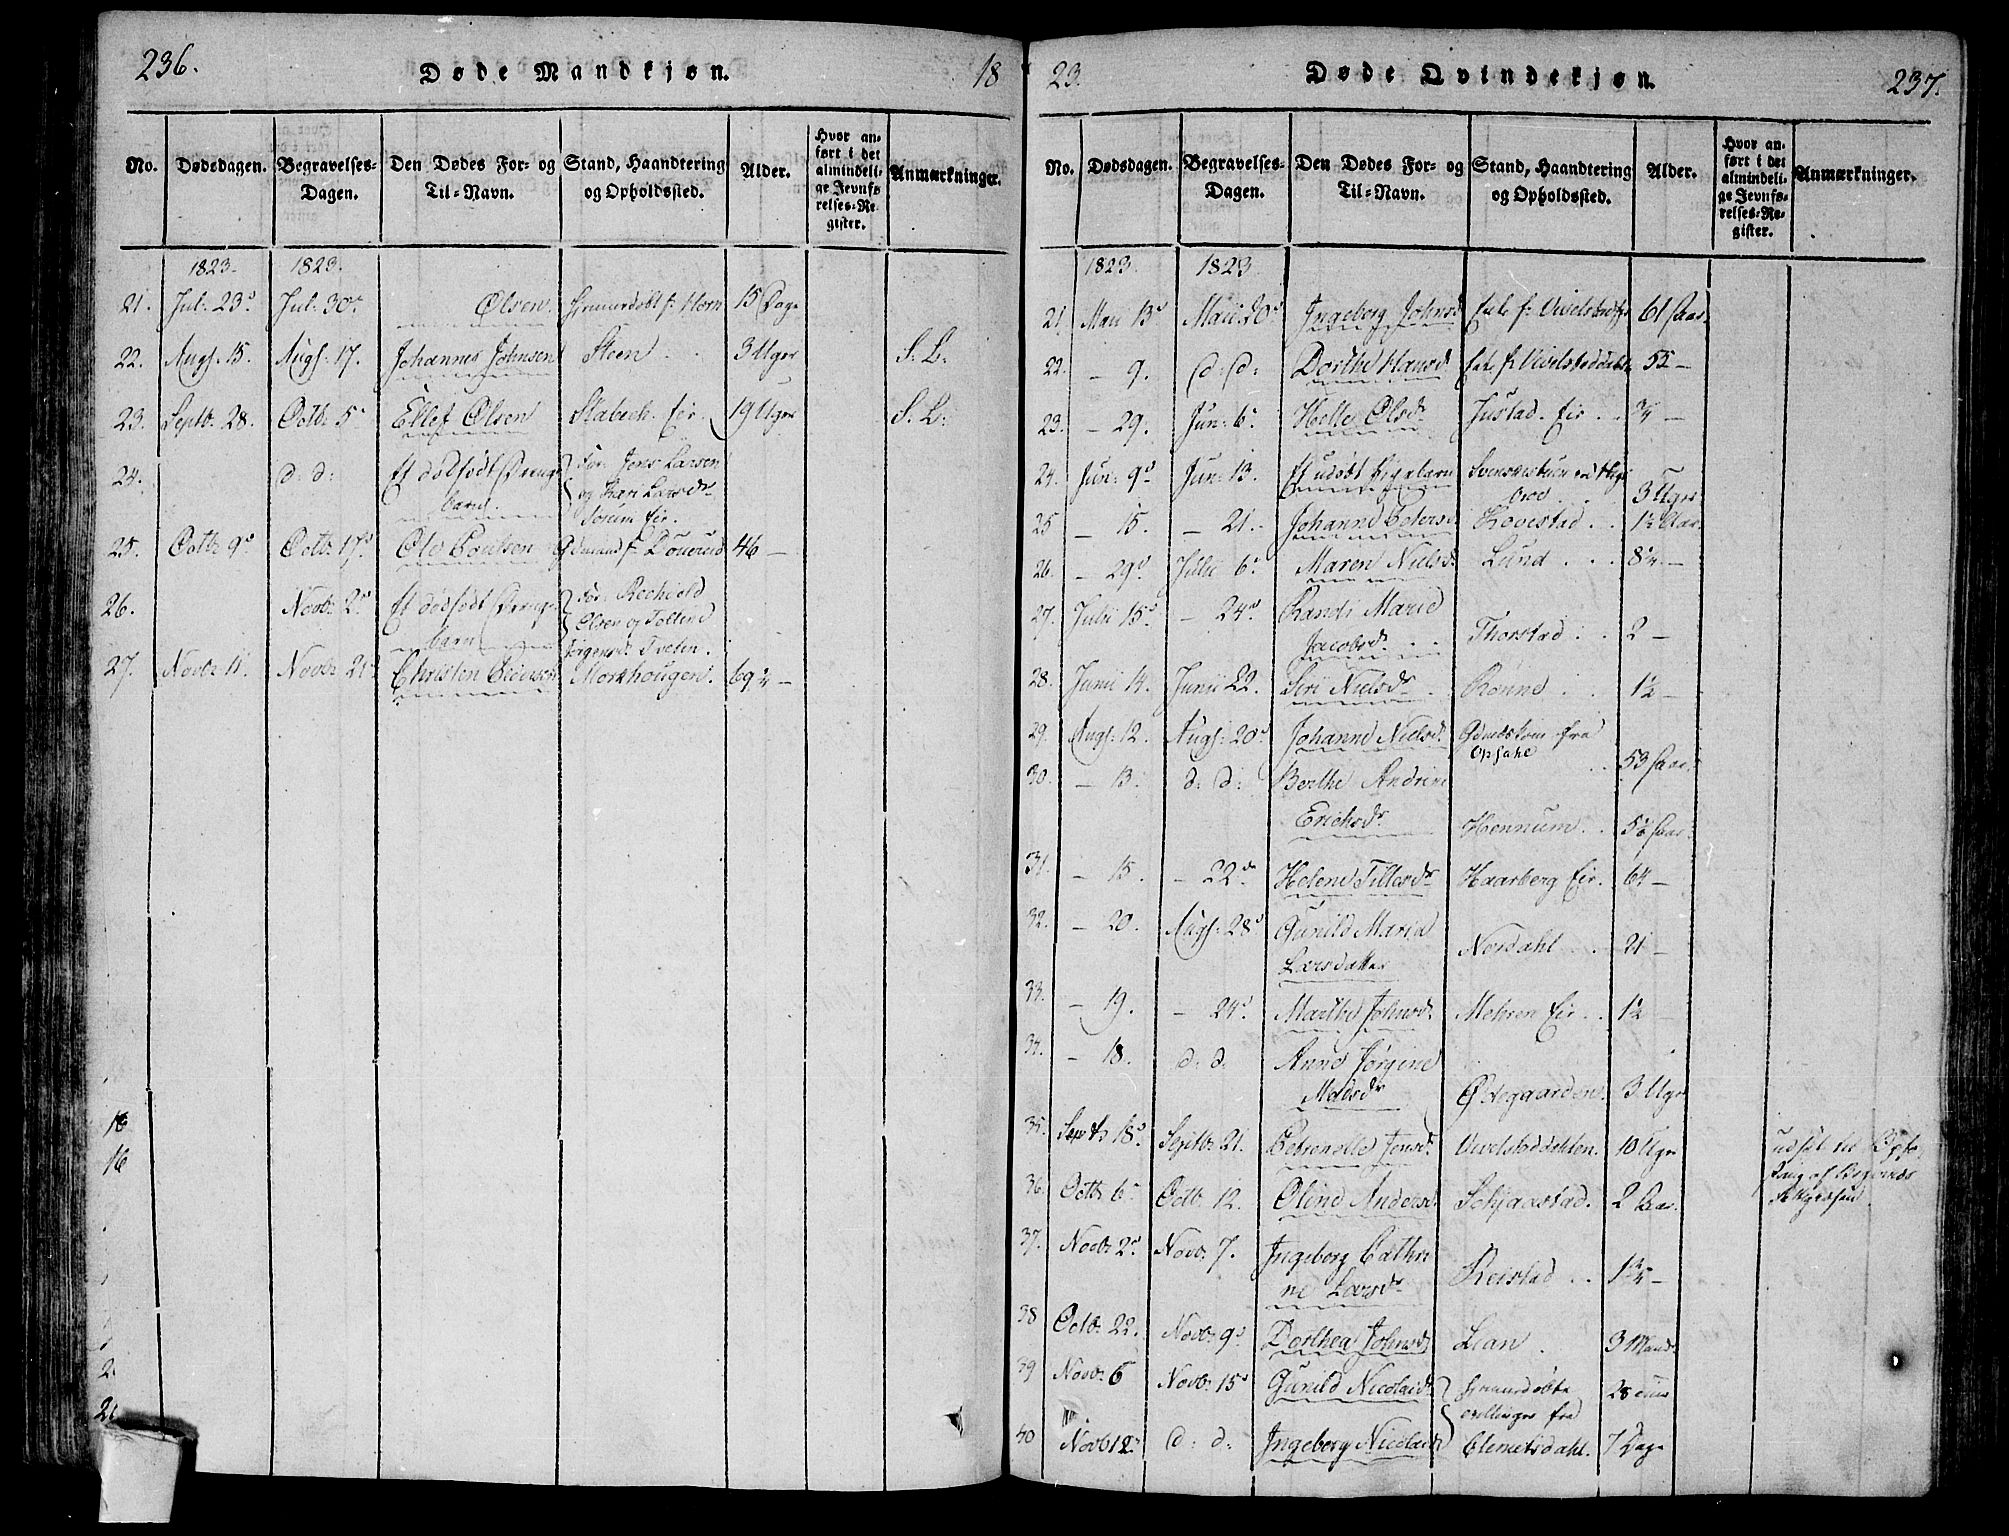 236. Døde Mandkjøn. 18
No. Dødsdagen. Begravelses-Dagen. Den Dødes For- og Til-Navn. Stand, Haandtering og Opholdssted. Alder. Hvor anført i det almindelige Jevnførelses-Register. Anmærkninger.
1823. 1823.
21. Jul: 23d Jul: 30te Olsen. hjemmedøbt f: Horn 15 Dage
22. Augs. 15. Augs. 17. Johannes Johnsen Steen 3 Uger S. L.
23. Septb. 28. Octb: 5 Ellef Olsen Stabech. Eir. 19 Uger S. L.
24. d: d: Et dødfødt Drenge For: Jens Larsen
barn. og Kari Larsdr
Sørum Eir.
25. Octb: 9d Octb: 17d Ole Poulsen Gdmand f. 46 —
26. Novb: 2d Et dødfødt Drenge For:
barn Olsen og
Jørgensdr Tveten.
27. Novb: 11. Novb: 21 Christen Pedersen Morkhougen. 69 1/4 —
16
16
2.
2
23. Døde Qvindekjøn. 237.
No. Dødsdagen. Begravelses-Dagen. Den Dødes For- og Til-Navn. Stand, Haandtering og Opholdssted. Alder. Hvor anført i det almindelige Jevnførelses-Register. Anmærkninger.
1823. 1823
21. Maii 13d Maii 20d Ingeborg Johnsd 61 Aar
22. — 9. d: d: Dorthe Hansd 55 —
23. — 29. Jun: 6. Helle Olsdr Justad. Eir. 3/4 —
24. Jun: 9d Jun: 13. Et udøbt Pigebarn 3 Uger
25 — 15. — 21. Johanne Petersd Hovestad. 1 1/2 Aar
26. — 29d Julii 6. Maren Nielsd. Lund 8 1/4 —
27. Julii 15d — 24d Randi Marie
Jacobsd. Thorstad 2 —
28. Junii 14. Junii 22. Siri Nielsdr Rønne 1 1/2 —
29. Augs. 12. Augs. 20d Johanne Nielsd. fra
Opsahl 53 Aar
30. — 13. d: d: Berthe Andrine
Erichsdr Hennum. 5 1/2 Aar
31. — 15. — 22d Helene Tillesdr Haarberg Eir. 64 —
32. — 20. Augs. 28d Gunild Maria
Larsdatter Nordahl 21 —
33. — 19. — 24d Marthe Johnsd. Mehren Eir. 1 1/2
34. — 18. d: d: Anne Jørgine
Madsdr Ødegaarden. 3 Uger
35. Septb 18d Septb: 21. Petronelle Jensd. 10 Uger udsat til
af
36. Octb: 6 Octb. 12. Oline Andersd. Schjarstad. 2 Aar.
37. Novb: 2d Novb: 7. Ingeborg Cathri
ne Larsdr Reistad 1 3/4 —
38 Octb: 22. Novb: 9d Dorthea Johnsd. Lian 3 Maan
39 Novb: 6 Novb: 15d Gunild Nicolaid. hjemmedøbte
tvillinger fra
40 Novb 12 d: d: Ingeborg Nicolaid Clemetsdahl. 7 Dage